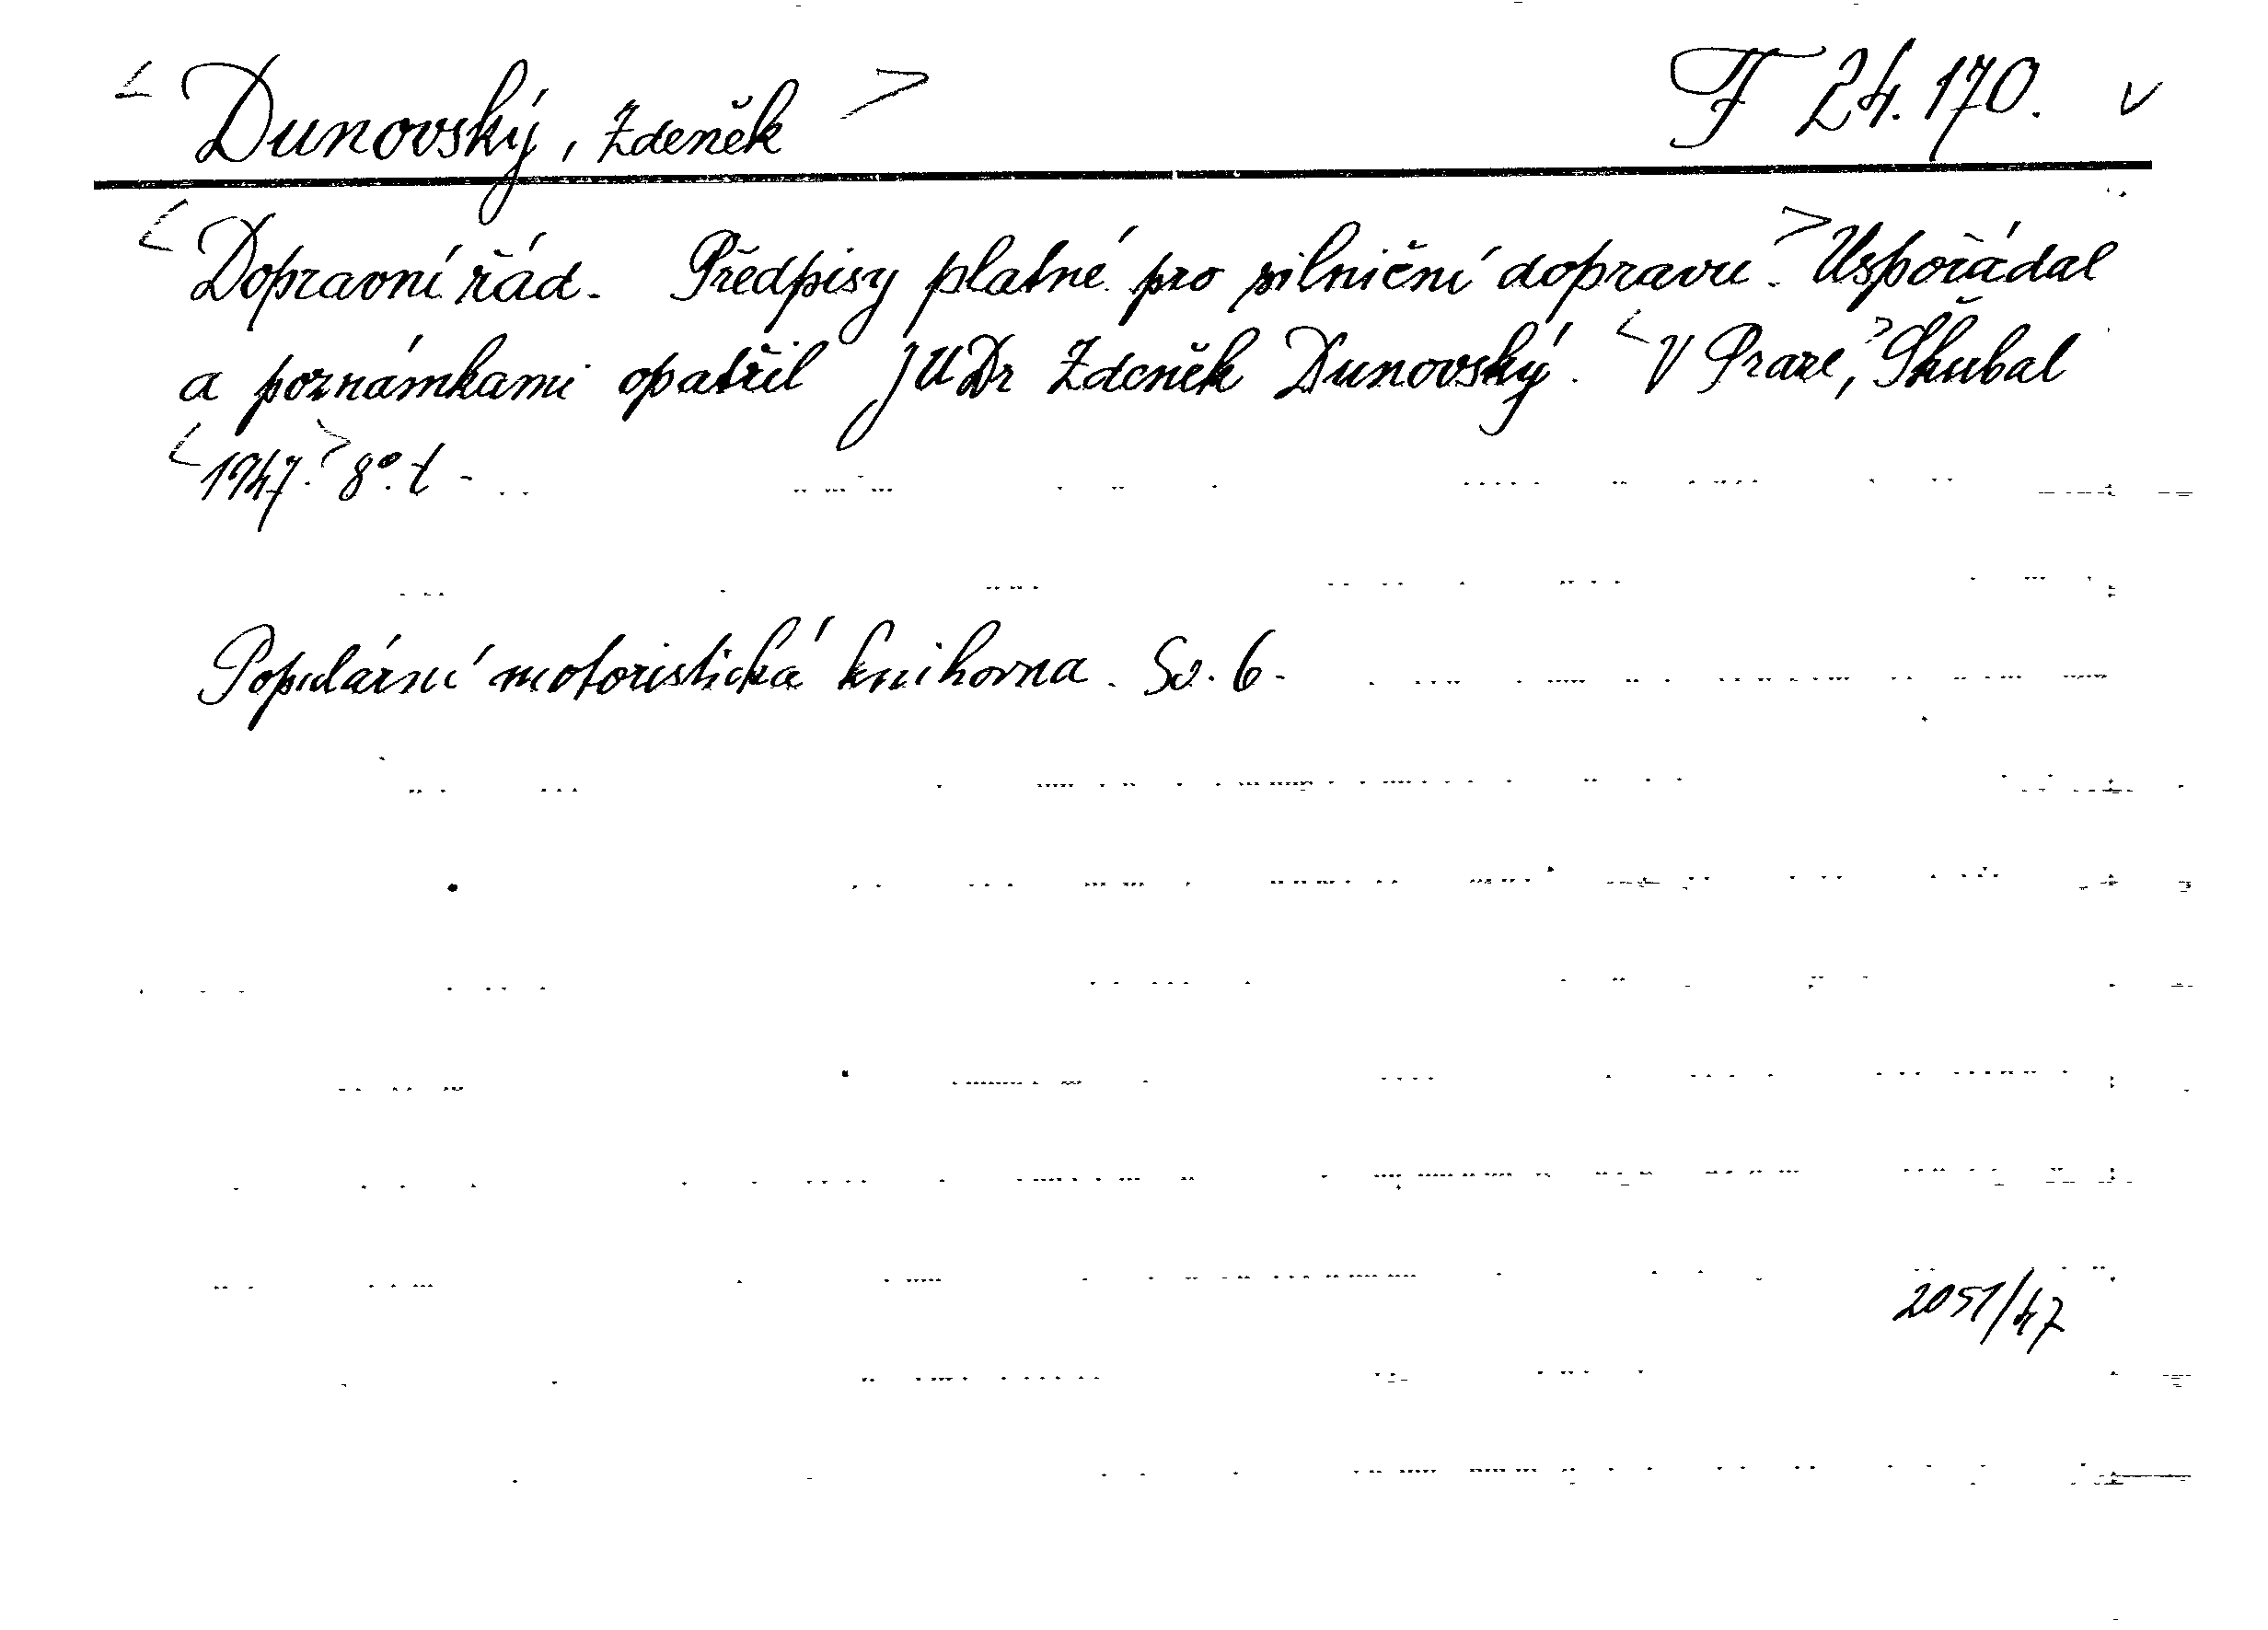 < Dunovský, Zdeněk > F 24.170. v
< Dopravní řád. Předpisy platné pro silniční dopravu. > Uspořádal
a poznámkami opatřil JUDr Zdeněk Dunovský. < V Praze, > Škubal
< 1947. > 8°. t.
Populární motoristická knihovna. Sv. 6.
2051/47